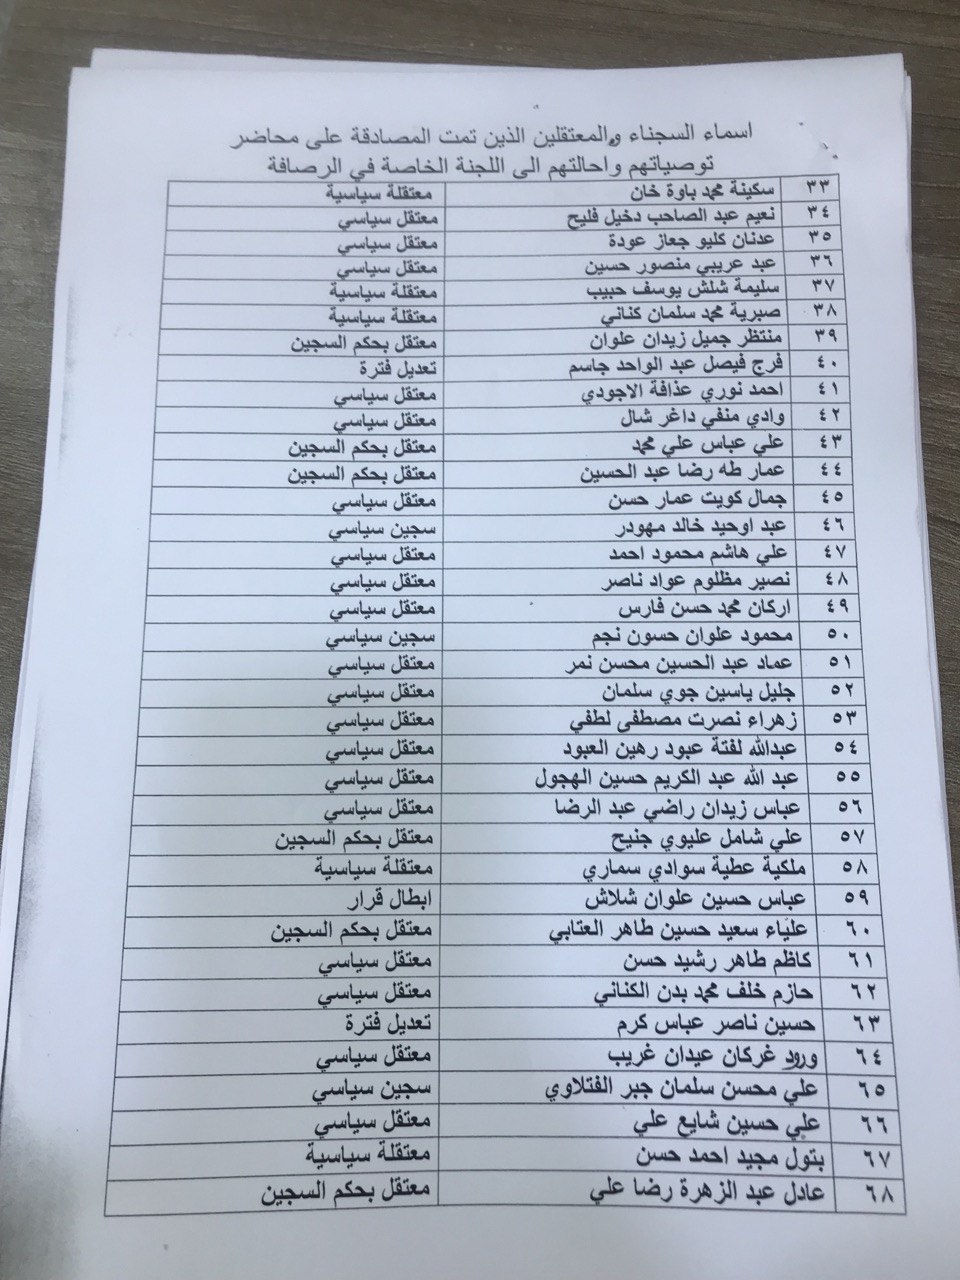 اسماء السجناء والمعتقلين الذين تمت المصادقة على محاضر
توصياتهم واحالتهم الى اللجنة الخاصة في الرصافة
٣٣ سكينة محمد باوة خان معتقلة سياسية
٣٤ نعيم عبد الصاحب دخيل فليح معتقل سياسي
٣٥ عدنان كليو جعاز عودة معتقل سياسي
٣٦ عبد عريبي منصور حسين معتقل سياسي
٣٧ سليمة شلش يوسف حبيب معتقلة سياسية
٣٨ صبرية محمد سلمان كناني معتقلة سياسية
٣٩ منتظر جميل زيدان علوان معتقل بحكم السجين
٤٠ فرج فيصل عبد الواحد جاسم تعديل فترة
٤١ احمد نوري عذافة الاجودي معتقل سياسي
٤٢ وادي منفي داغر شال معتقل سياسي
٤٣ علي عباس علي محمد معتقل بحكم السجين
٤٤ عمار طه رضا عبد الحسين معتقل بحكم السجين
٤٥ جمال كويت عمار حسن معتقل سياسي
٤٦ عبد اوحيد خالد مهودر سجين سياسي
٤٧ علي هاشم محمود احمد معتقل سياسي
٤٨ نصير مظلوم عواد ناصر معتقل سياسي
٤٩ اركان محمد حسن فارس معتقل سياسي
٥٠ محمود علوان حسون نجم سجين سياسي
٥١ عماد عبد الحسين محسن نمر معتقل سياسي
٥٢ جليل ياسين جوي سلمان معتقل سياسي
٥٣ زهراء نصرت مصطفى لطفي معتقل سياسي
٥٤ عبدالله لفتة عبود رهين العبود معتقل سياسي
٥٥ عبد الله عبد الكريم حسين الهجول معتقل سياسي
٥٦ عباس زيدان راضي عبد الرضا معتقل سياسي
٥٧ علي شامل عليوي جنيح معتقل بحكم السجين
٥٨ ملكية عطية سوادي سماري معتقلة سياسية
٥٩ عباس حسين علوان شلاش ابطال قرار
٦٠ علياء سعيد حسين طاهر العتابي معتقل بحكم السجين
٦١ كاظم طاهر رشيد حسن معتقل سياسي
٦٢ حازم خلف محمد بدن الكناني معتقل سياسي
٦٣ حسين ناصر عباس كرم تعديل فترة
٦٤ ورود غركان عيدان غريب معتقل سياسي
٦٥ علي محسن سلمان جبر الفتلاوي سجين سياسي
٦٦ علي حسين شايع علي معتقل سياسي
٦٧ بتول مجيد احمد حسن معتقلة سياسية
٦٨ عادل عبد الزهرة رضا علي معتقل بحكم السجين